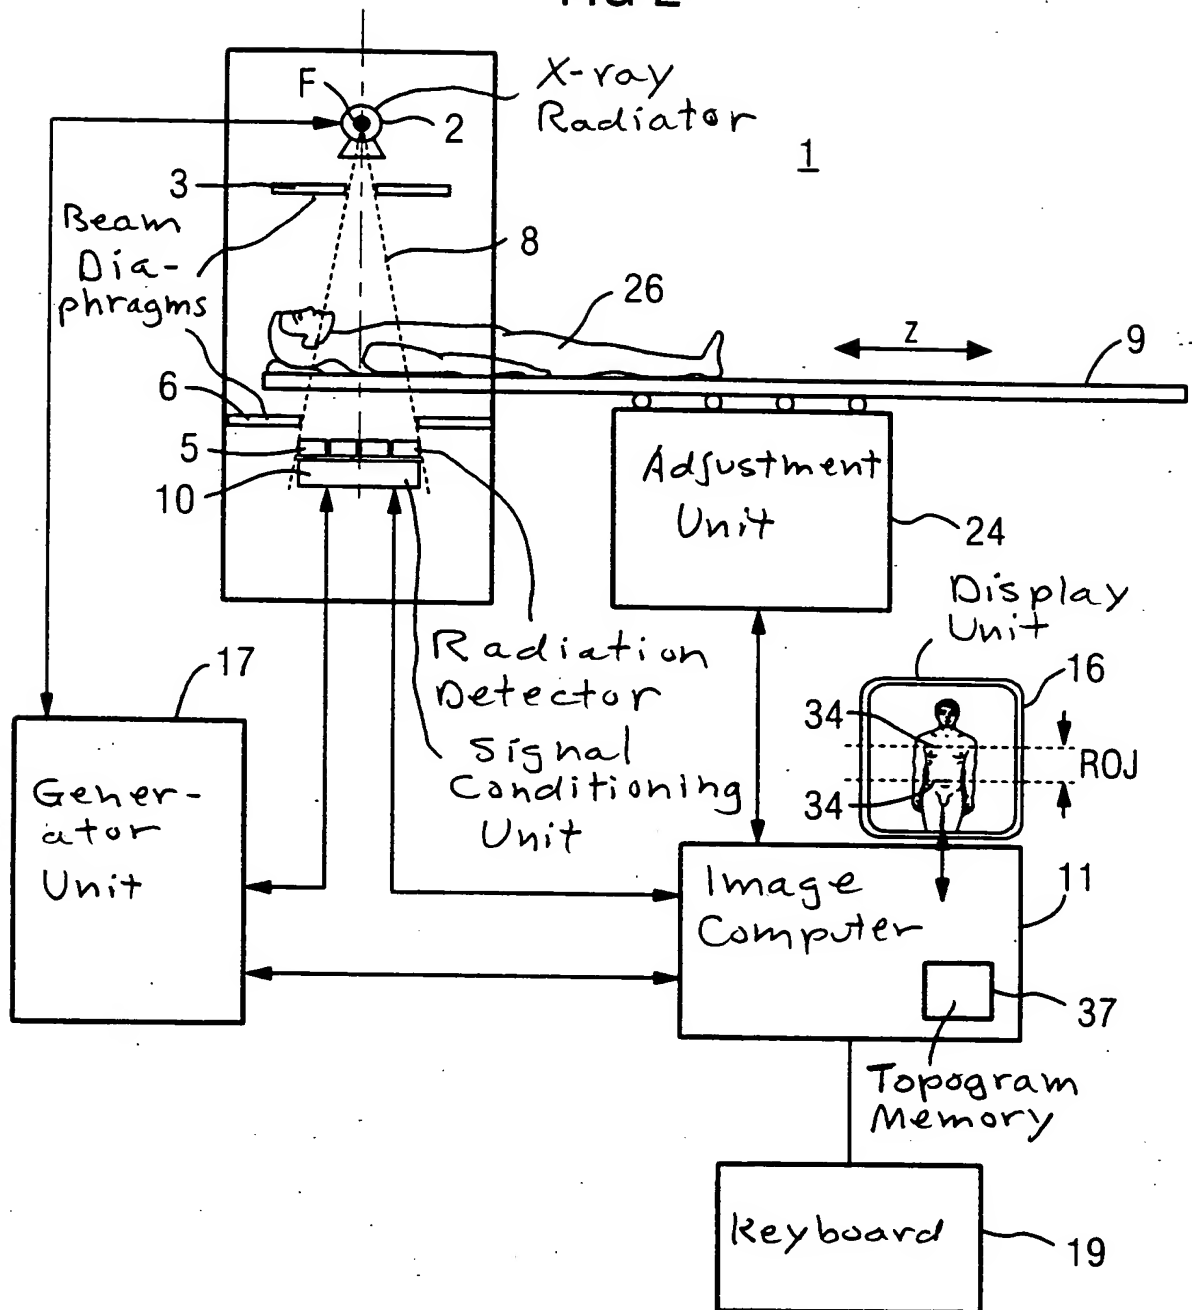 F
X-ray
Radiator
2
1
3
Beam
Dia-
phragms
8
26
z
9
6
5
10
Adjustment
Unit
24
Display
Unit
Radiation
Detector
17
16
34
ROJ
34
Signal
Conditioning
Unit
Gener-
ator
Unit
Image
Computer
11
37
Topogram
Memory
Keyboard
19